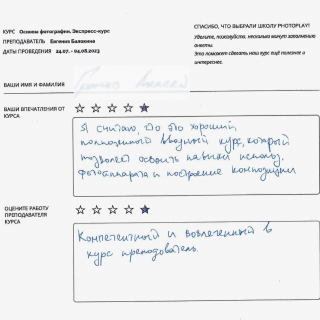 КУРС Основы фотографии. Экспресс-курс
ПРЕПОДАВАТЕЛЬ Евгения Балакина
ДАТЫ ПРОВЕДЕНИЯ 24.07. - 04.08.2023
СПАСИБО, ЧТО ВЫБРАЛИ ШКОЛУ PHOTOPLAY!
Уделите, пожалуйста, несколько минут заполнению
анкеты.
Это поможет сделать наш курс ещё полезнее и
интереснее.
ВАШИ ИМЯ И ФАМИЛИЯ
ВАШИ ВПЕЧАТЛЕНИЯ ОТ
КУРСА
Я считаю, что это хороший,
полноценный вводный курс, который
позволяет освоить навыки использ.
фотоаппарата и построение композиции
ОЦЕНИТЕ РАБОТУ
ПРЕПОДАВАТЕЛЯ
КУРСА
Компетентный и вовлеченный в
курс преподователь.